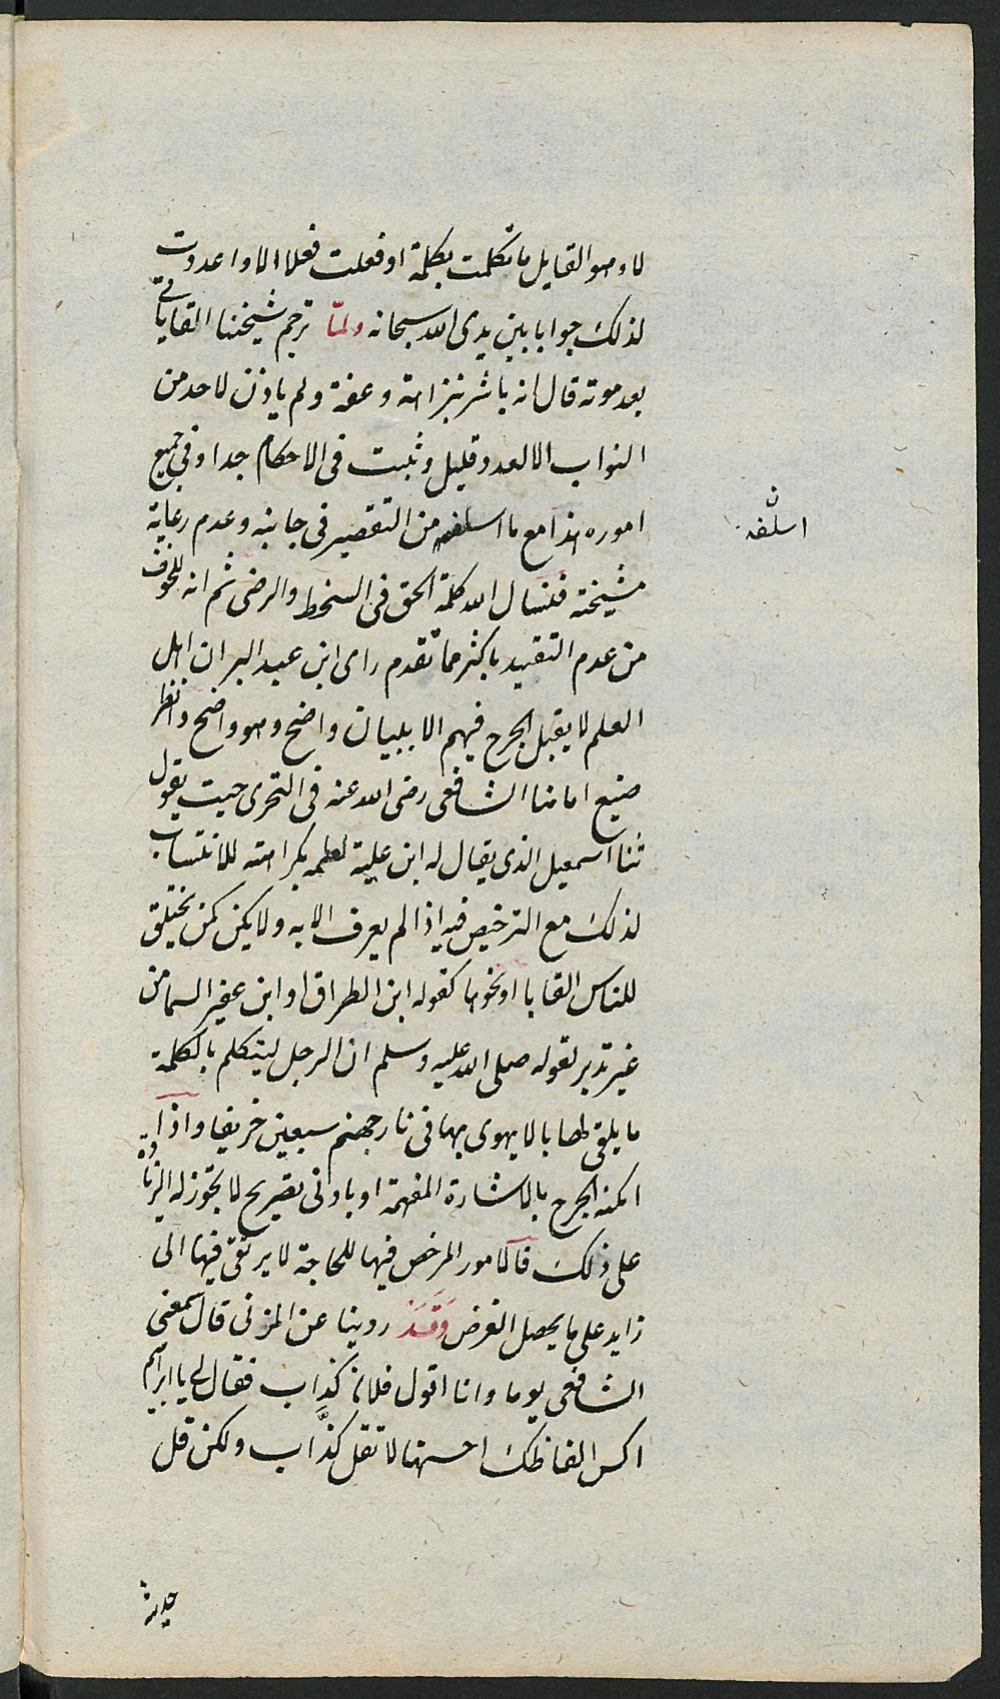 لا وهو القايل ما تكلمت بكلمة او فعلت فعلا الا واعددت
لذلك جوابا بين يدى الله سبحانه ولما ترجم شيخنا القاياتى
بعد موته قال انه باشر بنزاهة وعفة ولم ياذن لاحد من
النواب الا لعدد قليل وثبت فى الاحكام جدا وفى جميع
اموره هذا مع ما اسلفه من التقصير فى جانبه وعدم رعاية
ن
اسلفه
مشيخته فنسال الله كلمة الحق فى السخط والرضى ثم انه للخوف
من عدم التقيد باكثر مما تقدم راى ابن عبد البر ان اهل
العلم لا يقبل الجرح فيهم الا ببيان واضح وهو واضح وانظر
صنيع امامنا الشافعى رضى الله عنه فى التحرى حيث يقول
ثنا اسمعيل الذى يقال له ابن علية لعلمه بكراهته للانتساب
لذلك مع الترخيص فيه اذا لم يعرف الا به ولا يكن كمن يختلق
للناس القابا او نحوها كقوله ابن الطراق او ابن عقير السما من
غير تدبر لقوله صلى الله عليه وسلم ان الرجل ليتكلم بالكلمة
ما يلقى لها بالا يهوى بها فى نار جهنم سبعين خريفا واذا
امكنه الجرح بالاشارة المفهمة او بادنى تصريح لا تجوز له الزيادة
على ذلك فالامور المرخص فيها للحاجة لا يرتقى فيها الى
زايد على ما يحصل الغرض وقد روينا عن المزنى قال سمعنى
الشافعى يوما وانا اقول فلان كذاب فقال لى يا ابراهيم
اكس الفاظك احسنها لا تقل كذّاب ولكن قل
حديثه